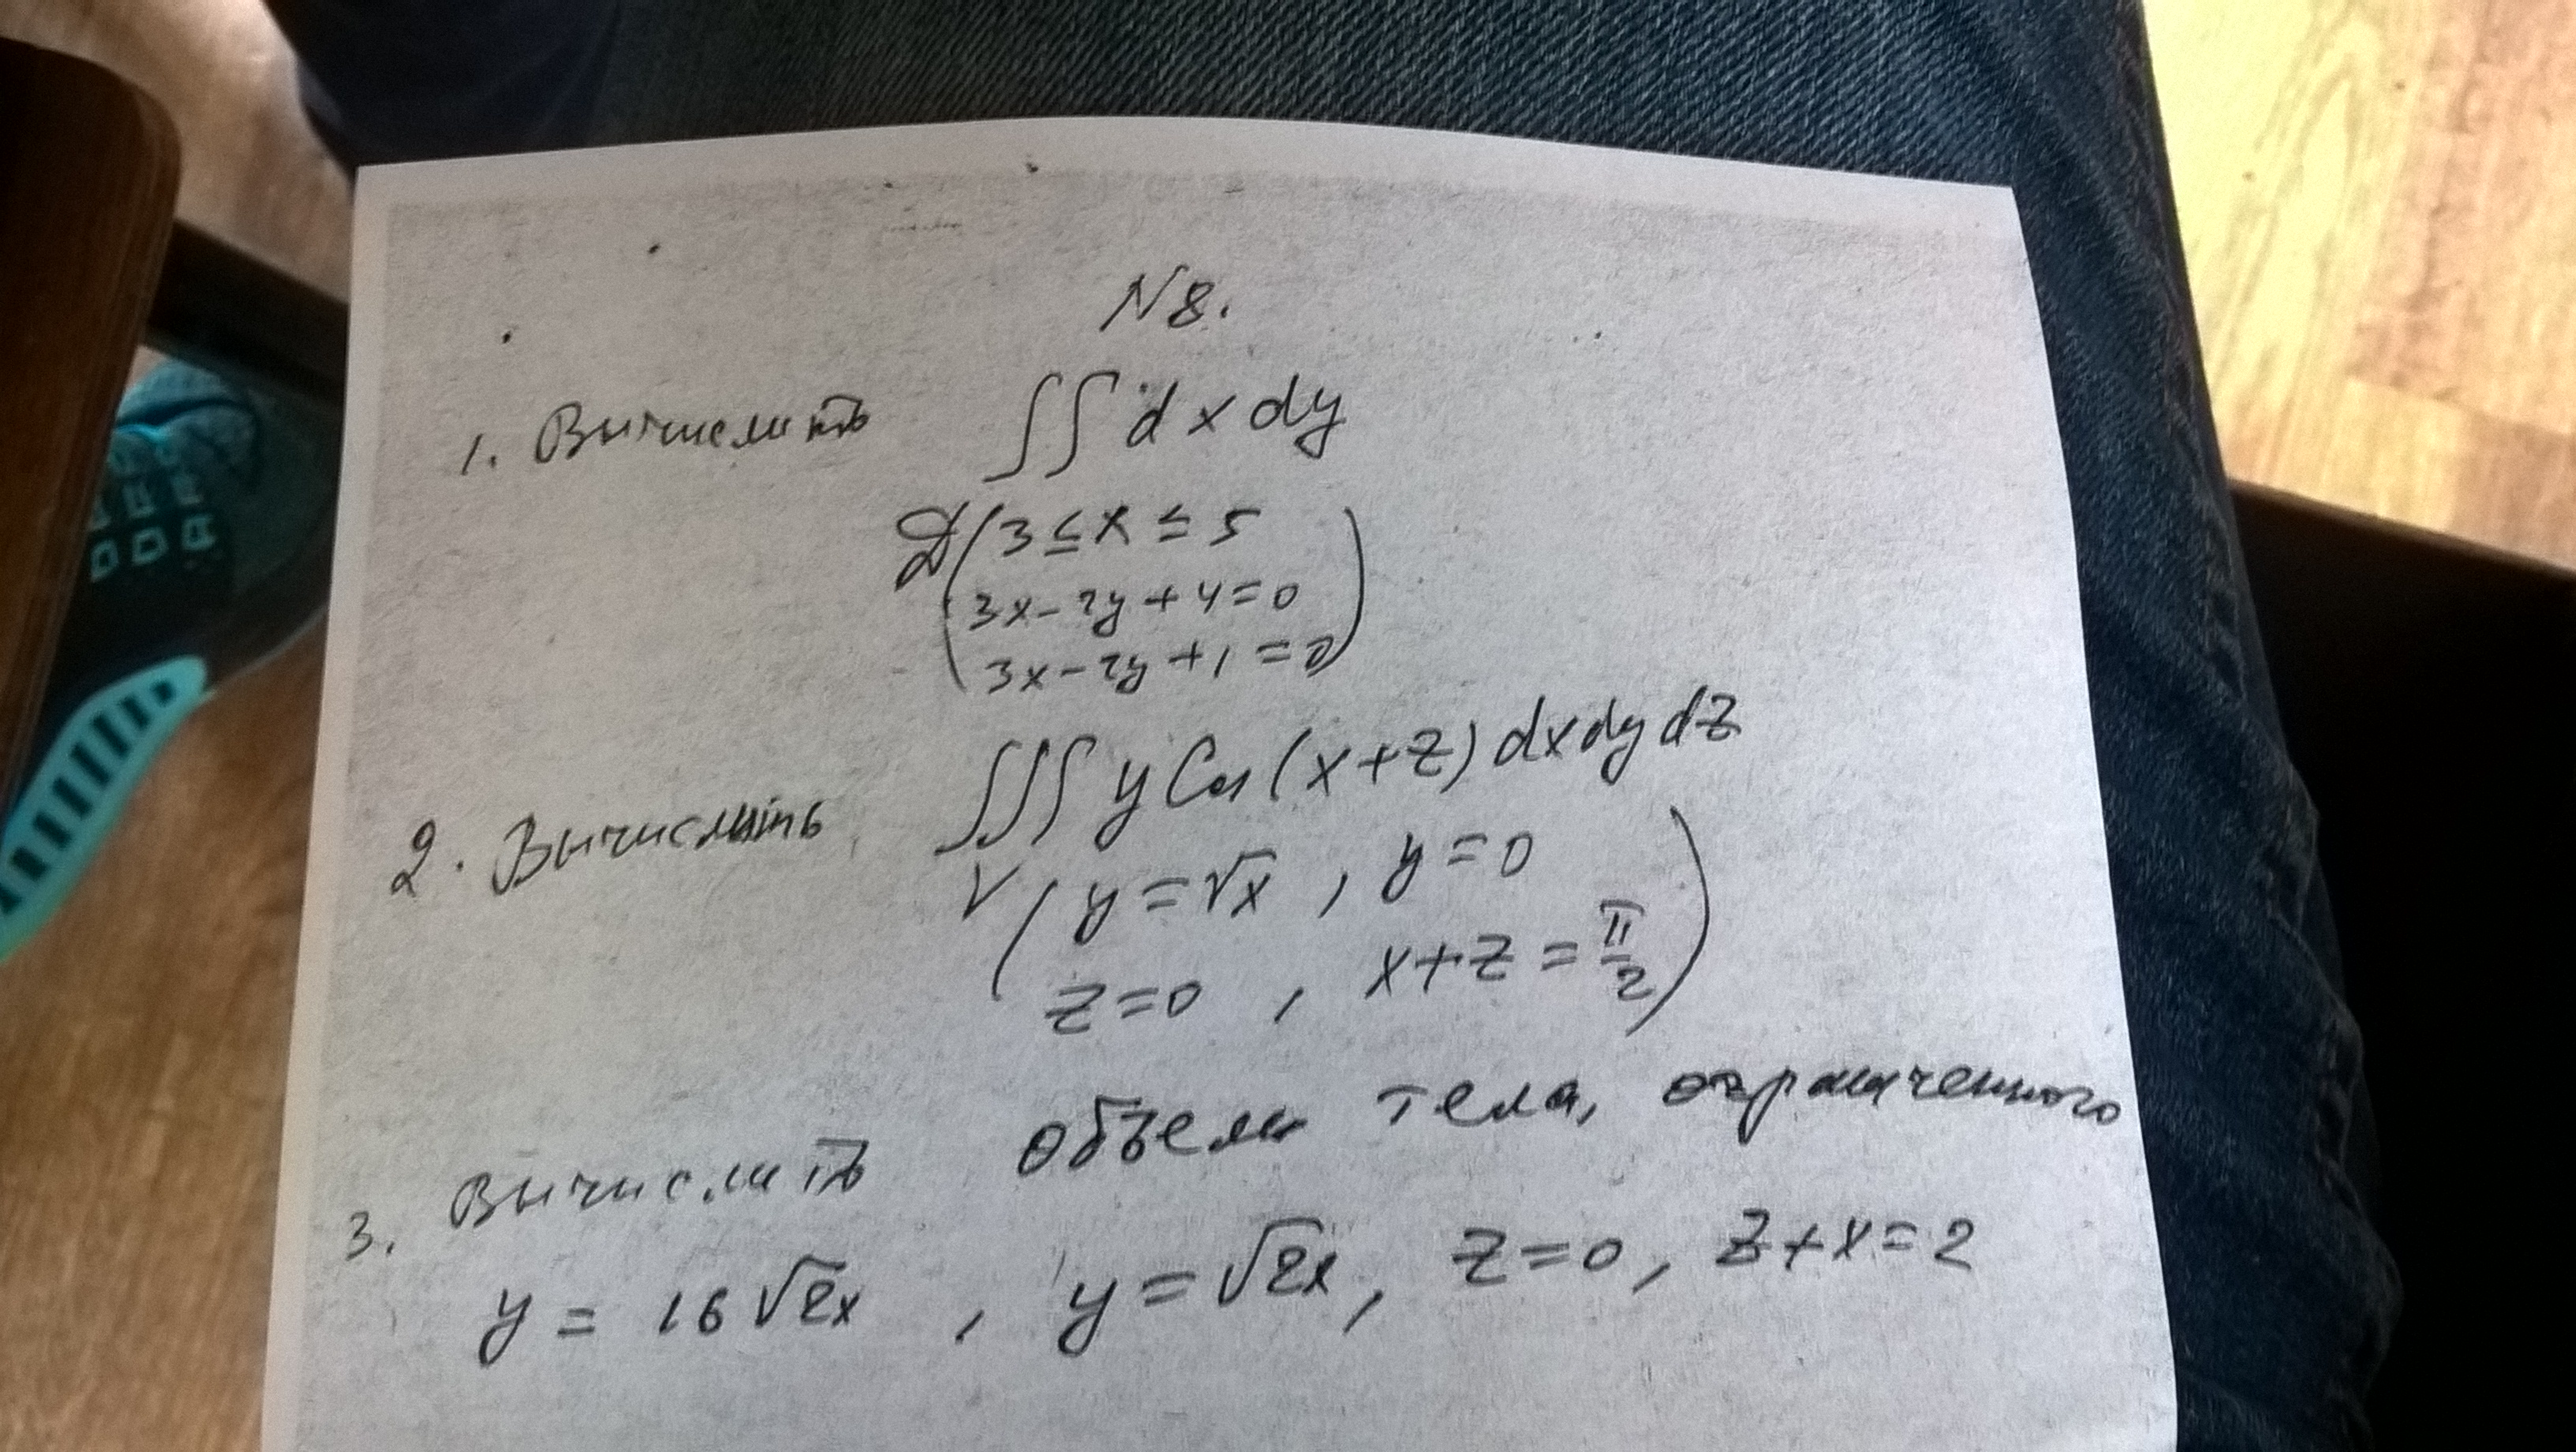 N 8.
1. Вычислить ∫∫ dx dy
D (3 ≤ x ≤ 5
3x - 2y + 4 = 0
3x - 2y + 1 = 0)
2. Вычислить ∫∫∫ y Cos (x+z) dx dy dz
V (y = √x , y = 0
z = 0 , x + z = π/2)
3. Вычислить объем тела, ограниченного
y = 16√2x , y = √2x, z = 0, z + x = 2